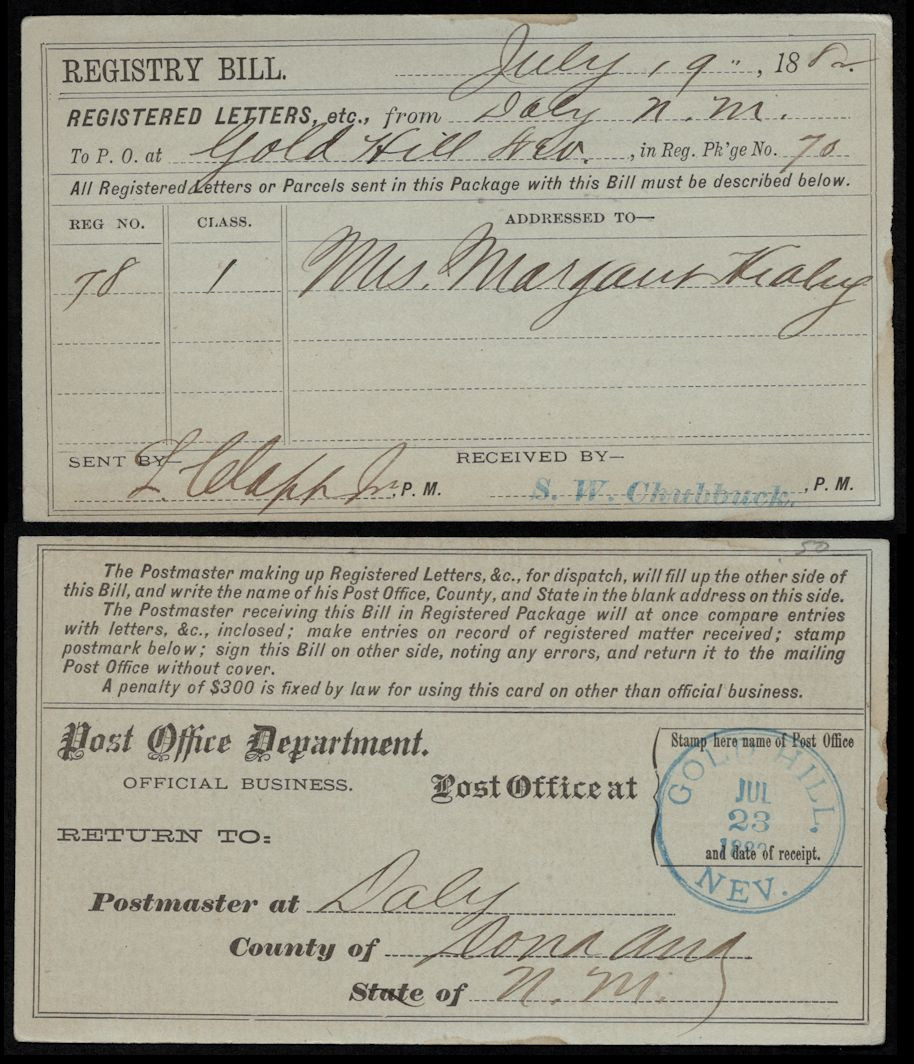 REGISTRY BILL. July 19", 1882.
REGISTERED LETTERS, etc., from Daly N. M.
To P. O. at Gold Hill Nev. , in Reg. Pk'ge No. 70
All Registered Letters or Parcels sent in this Package with this Bill must be described below.
REG NO. CLASS. ADDRESSED TO—
78 1 Mrs. Margaret Healey
SENT BY— RECEIVED BY—
L. Clapp Jr. , P. M. S. W. Chubbuck. , P. M.
50
The Postmaster making up Registered Letters, &c., for dispatch, will fill up the other side of
this Bill, and write the name of his Post Office, County, and State in the blank address on this side.
The Postmaster receiving this Bill in Registered Package will at once compare entries
with letters, &c., inclosed; make entries on record of registered matter received; stamp
postmark below; sign this Bill on other side, noting any errors, and return it to the mailing
Post Office without cover.
A penalty of $300 is fixed by law for using this card on other than official business.
Post Office Department.
OFFICIAL BUSINESS.
Post Office at
Stamp here name of Post Office
and date of receipt.
GOLD HILL,
JUL
23
1882
NEV.
RETURN TO:
Postmaster at Daly
County of Dona Ana
State of N. M.